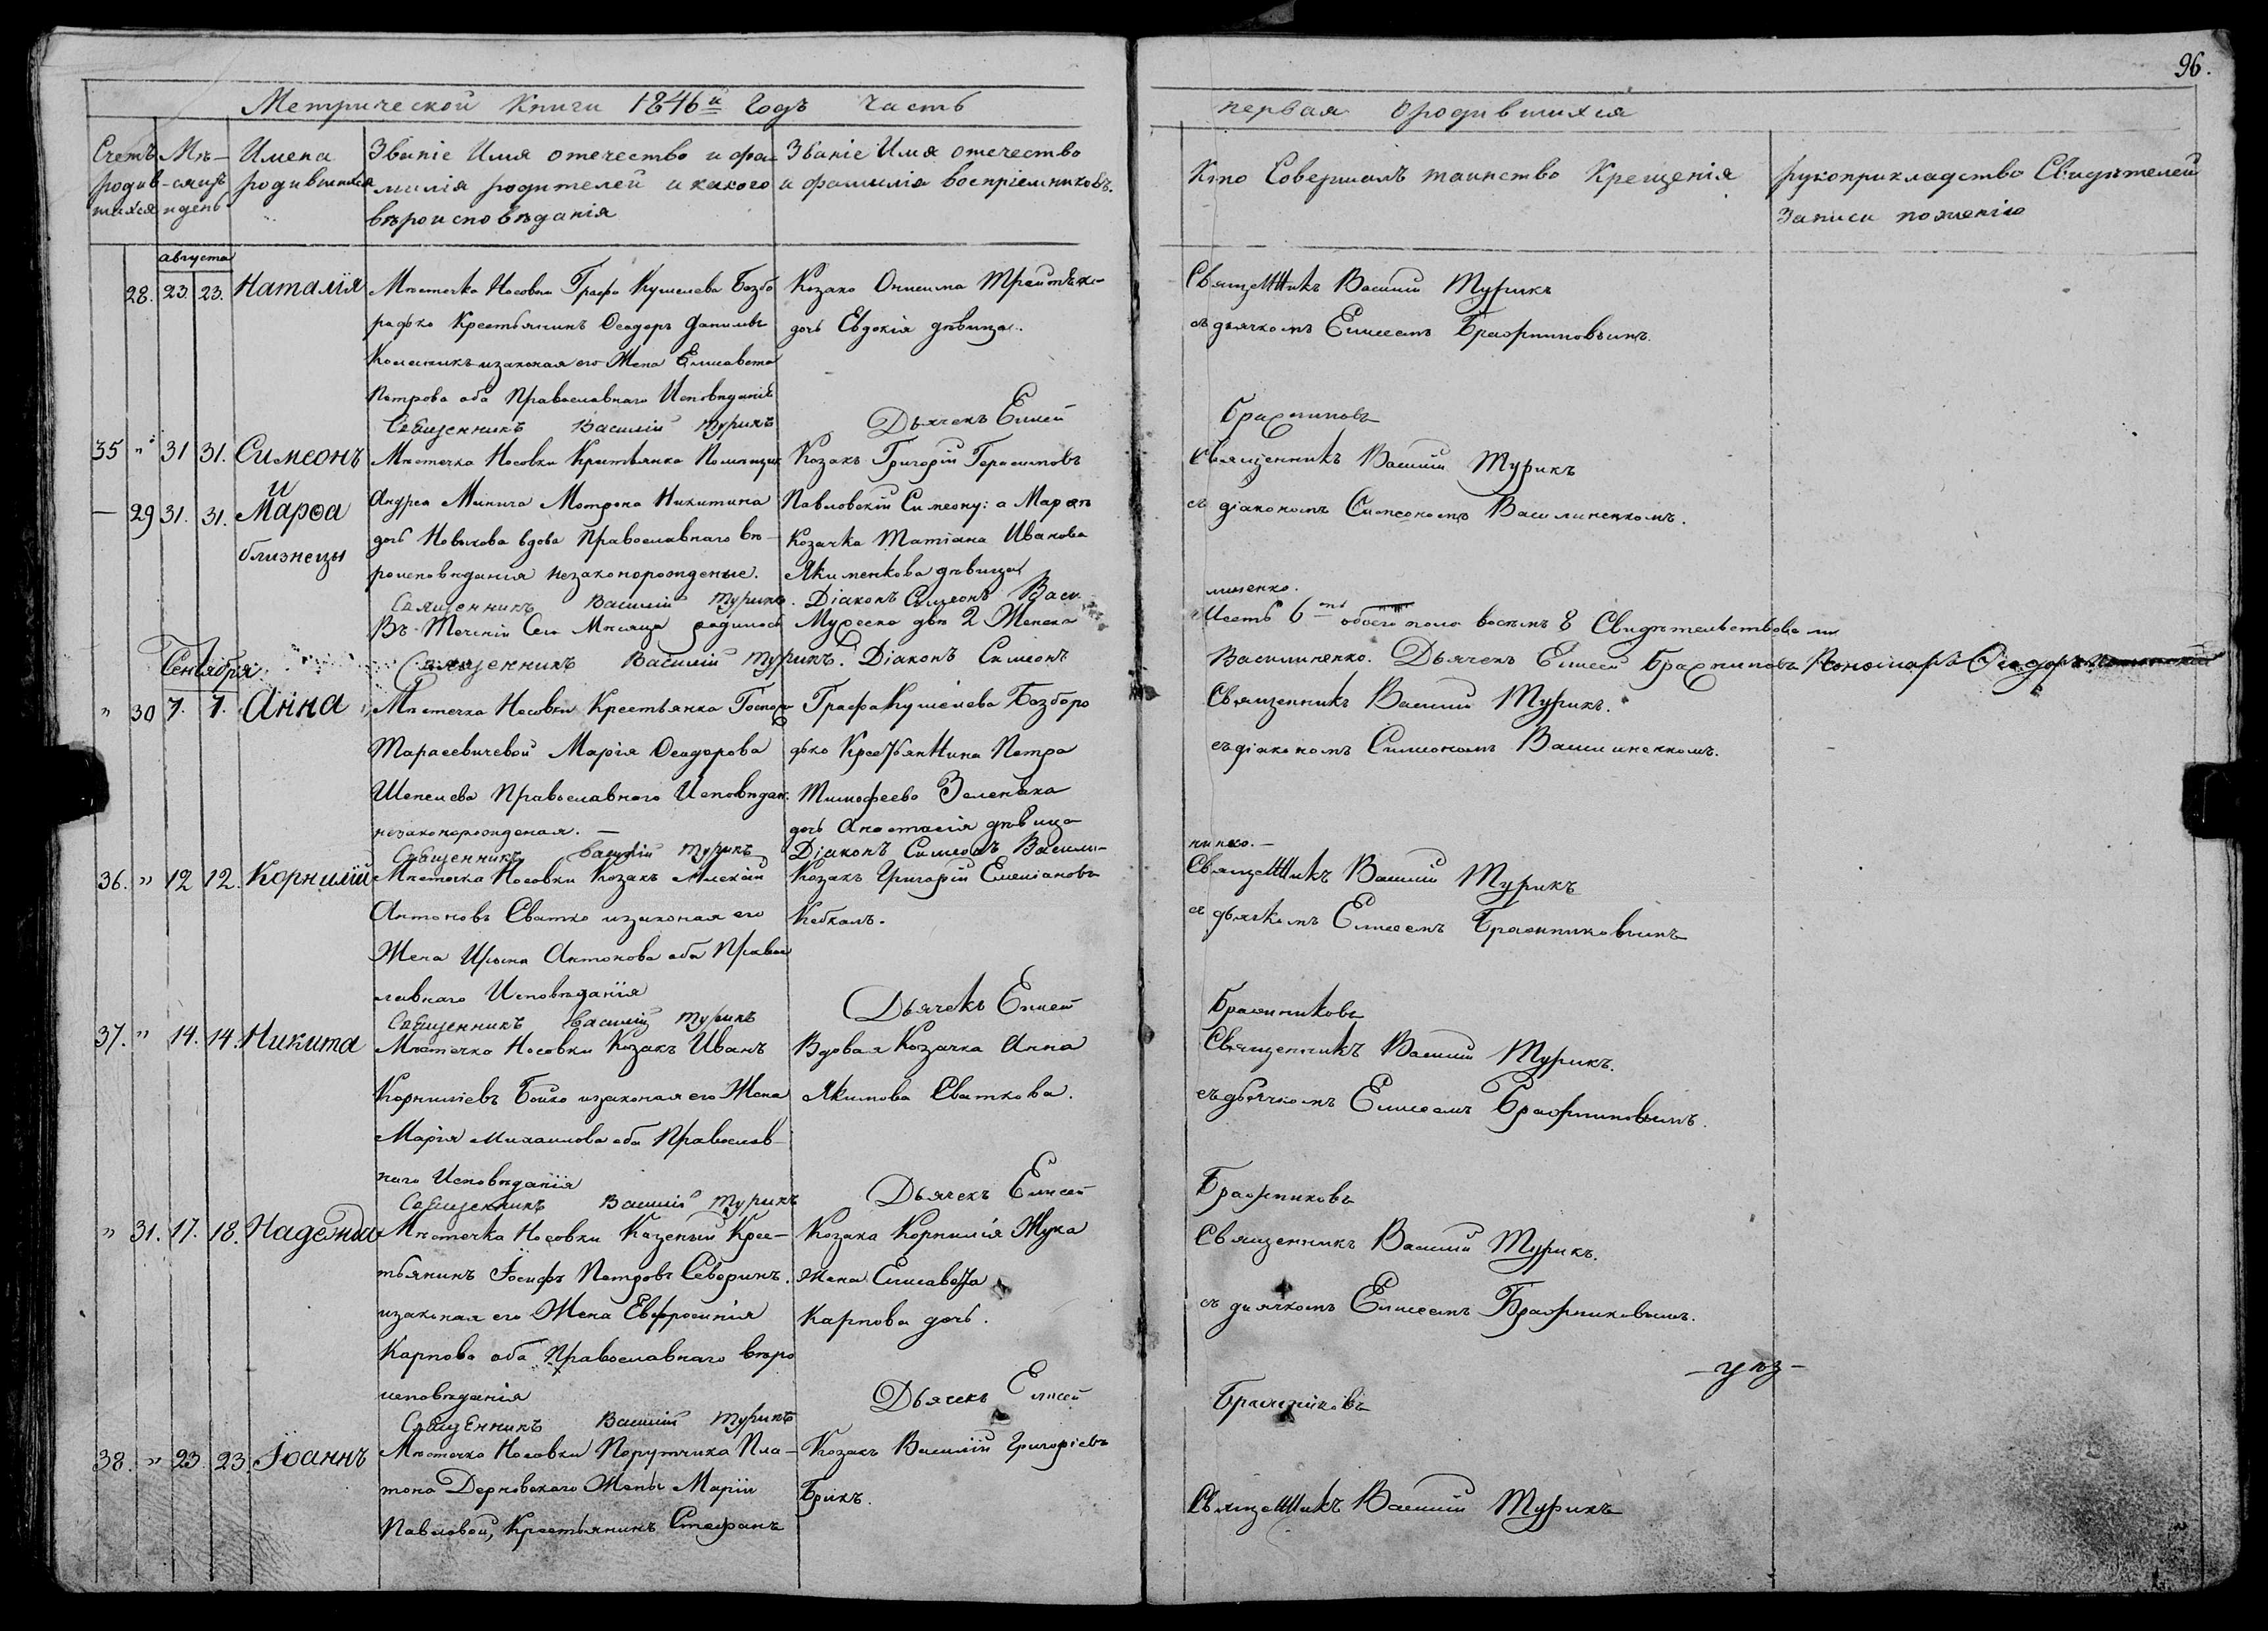 96.
Метрической Книги 1846й Годъ Часть первая о родившихся
Счетъ родившихся
Мѣсяцъ и день
Имена родившихся
Званіе Имя отечество и фамилія родителей и какого вѣроисповѣданія
Званіе Имя отечество и фамилія воспріемниковъ.
Кто Совершалъ таинство Крещенія
рукоприкладство Свидѣтелей Записи по
августа
28. 23. 23. Наталія
Мѣстечка Носовки Графа Кушелева Безбо
родко Крестьянинъ Ѳеодоръ Даниловъ
Колесникъ изаконая его Жена Елисавета
Петрова оба Православнаго Исповѣданія
Священникъ Василій Турикъ
Козака Онисима
дочь Евдокія дѣвица.
Дьячекъ Елисей
Священникъ Василій Турикъ
съ дьячкомъ Елисеемъ Бражниковымъ.
Бражниковъ
35 " 31 31. Симеонъ
и
— 29 31. 31. Марѳа
близнецы
Мѣстечка Носовки Крестьянка Помѣщик
Андрея Минича Мотрона Никитина
дочь Новикова вдова Православнаго вѣ-
роисповѣданія незаконорожденые.
Священникъ Василій Турикъ.
Козакъ Григорій Герасимовъ
Павловскій Симеону: а Марѳѣ
Козачка Татіана Иванова
Якименкова дѣвица
Діаконъ Симеонъ Васи
Священникъ Василій Турикъ
съ діакономъ Симеономъ Василиненкомъ.
линенко.
Въ Теченіи Сего Мѣсяца родилось Мужеска двѣ 2 Женска Шесть 6ть обоего пола восемь 8 Свидѣтельствовали
Священникъ Василій Турикъ. Діаконъ Симеонъ Василиненко. Дьячекъ Елисей Бражниковъ Пономарь Ѳеодоръ
Сентября
" 30 7. 7. Анна
Мѣстечка Носовки Крестьянка Госпож
Тарасевичевой Марія Ѳеодорова
Шепелева Православного Исповѣдан.
незаконорожденая. —
Священникъ Василій Турикъ
Графа Кушелева Безборо
дко Крестьянина Петра
Тимофеева Зеленька
дочь Анастасія дѣвица
Діаконъ Симеонъ Васили-
Священникъ Василій Турикъ.
съ діакономъ Симеономъ Василиненкомъ.
ненко. —
36. " 12 12. Корнилій
Мѣстечка Носовки Козакъ Алексій
Антоновъ Сватко изаконая его
Жена Ирина Антонова оба Правос
лавнаго Исповѣданія
Священникъ Василій Турикъ
Козакъ Григорій Емеліановъ
Кебкалъ.
Дьячекъ Елисей
Священникъ Василій Турикъ
съ дьячкомъ Елисеемъ Бражниковымъ
Бражниковъ
37. " 14. 14. Никита
Мѣстечка Носовки Козакъ Иванъ
Корниліевъ Бойко изаконая его Жена
Марія Михаилова оба Православ-
наго Исповѣданія
Священникъ Василій Турикъ
Вдовая Козачка Анна
Якимова Сваткова.
Дьячекъ Елисей
Священникъ Василій Турикъ.
съ дьячкомъ Елисеемъ Бражниковымъ.
Бражниковъ
" 31. 17. 18. Надежда
Мѣстечка Носовки Казеный Крес-
тьянинъ Іосифъ Петровъ Северинъ.
изаконая его Жена Евфросинія
Карпова оба Православнаго вѣро
исповѣданія
Священникъ Василій Турикъ
Козака Корнилія Жука
Жена Елисавета
Карпова дочь.
Дьячекъ Елисей
Священникъ Василій Турикъ.
съ дьячкомъ Елисеемъ Бражниковымъ.
Бражниковъ
38. " 23. 23. Іоаннъ
Мѣстечка Носовки Порутчика Пла-
тона Дерновского Жены Маріи
Павловой, Крестьянинъ Стефанъ
Козакъ Василій Григоріевъ
Брикъ.
Священникъ Василій Турикъ